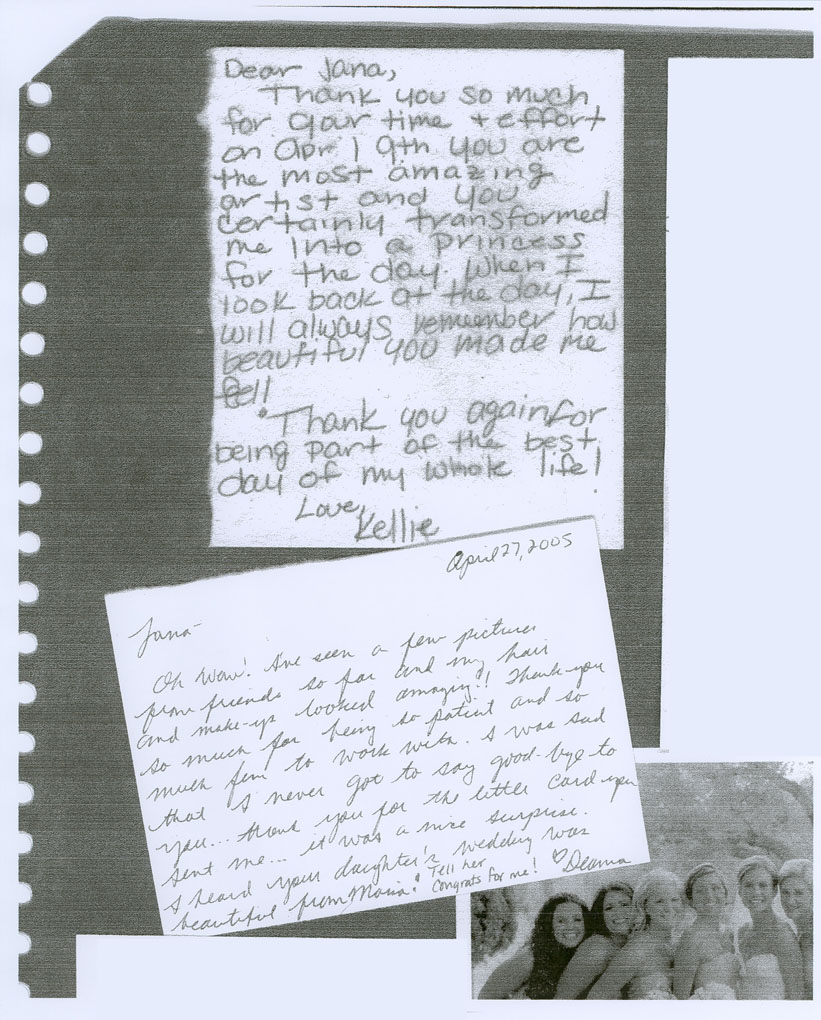 Dear Jana,
Thank you so much
for your time + effort
on April 9th you are
the most amazing
artist and you
certainly transformed
me into a princess
for the day. When I
look back at the day, I
will always remember how
beautiful you made me
fell
Thank you again for
being part of the best
day of my whole life!
Love,
Kellie
April 27, 2005
Jana-
Oh Wow! I've seen a few pictures
from friends so far and my hair
and make-up looked amazing!! Thank-you
so much for being so patient and so
much fun to work with. I was sad
that I never got to say good-bye to
you... thank you for the little card you
sent me... it was a nice surprise.
I heard your daughter's wedding was
beautiful from Maria! Tell her
Congrats for me! ♡Deanna